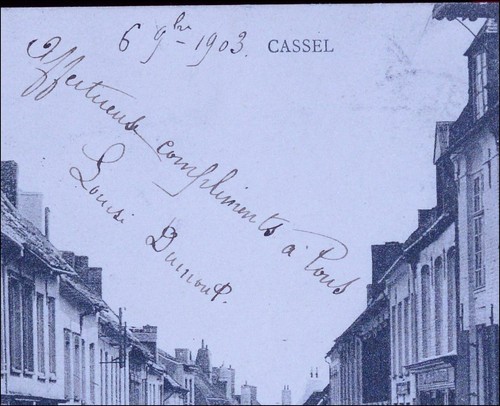 6 9bre 1903. CASSEL
Affectueux compliments à tous
Dumont.